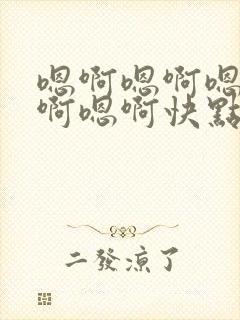 嗯啊嗯啊嗯
啊嗯啊快點
二發涼了